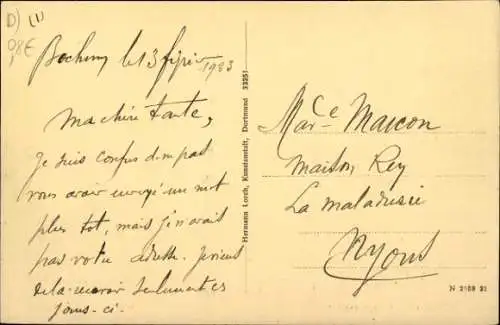 D) (1)
0,8€
Bochum le 13 février 1923
Ma chère tante,
Je suis confus de ne pas
vous avoir envoyé un mot
plus tôt, mais je n'avais
pas votre adresse. Je viens
de la recevoir seulement ces
jours-ci.
Hermann Lorch, Kunstanstalt, Dortmund 33251
Maison Rey
La maladrerie
Nyons
N 2169 21